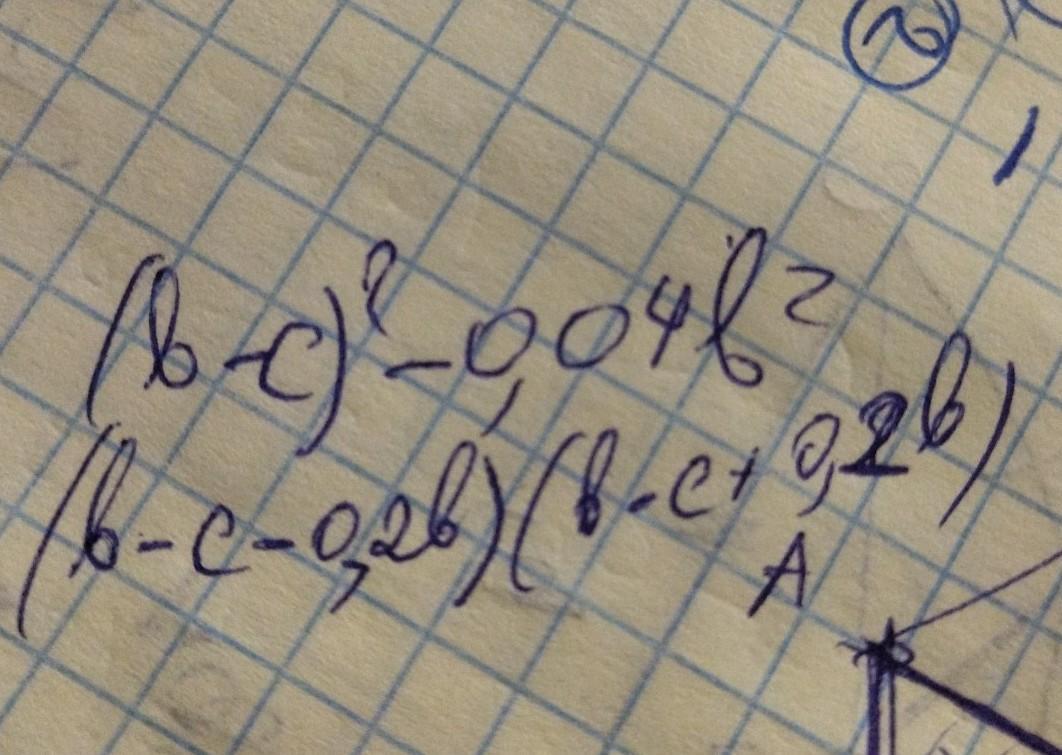 (b-c)²-0,04b²
(b-c-0,2b)(b-c+0,2b)
A